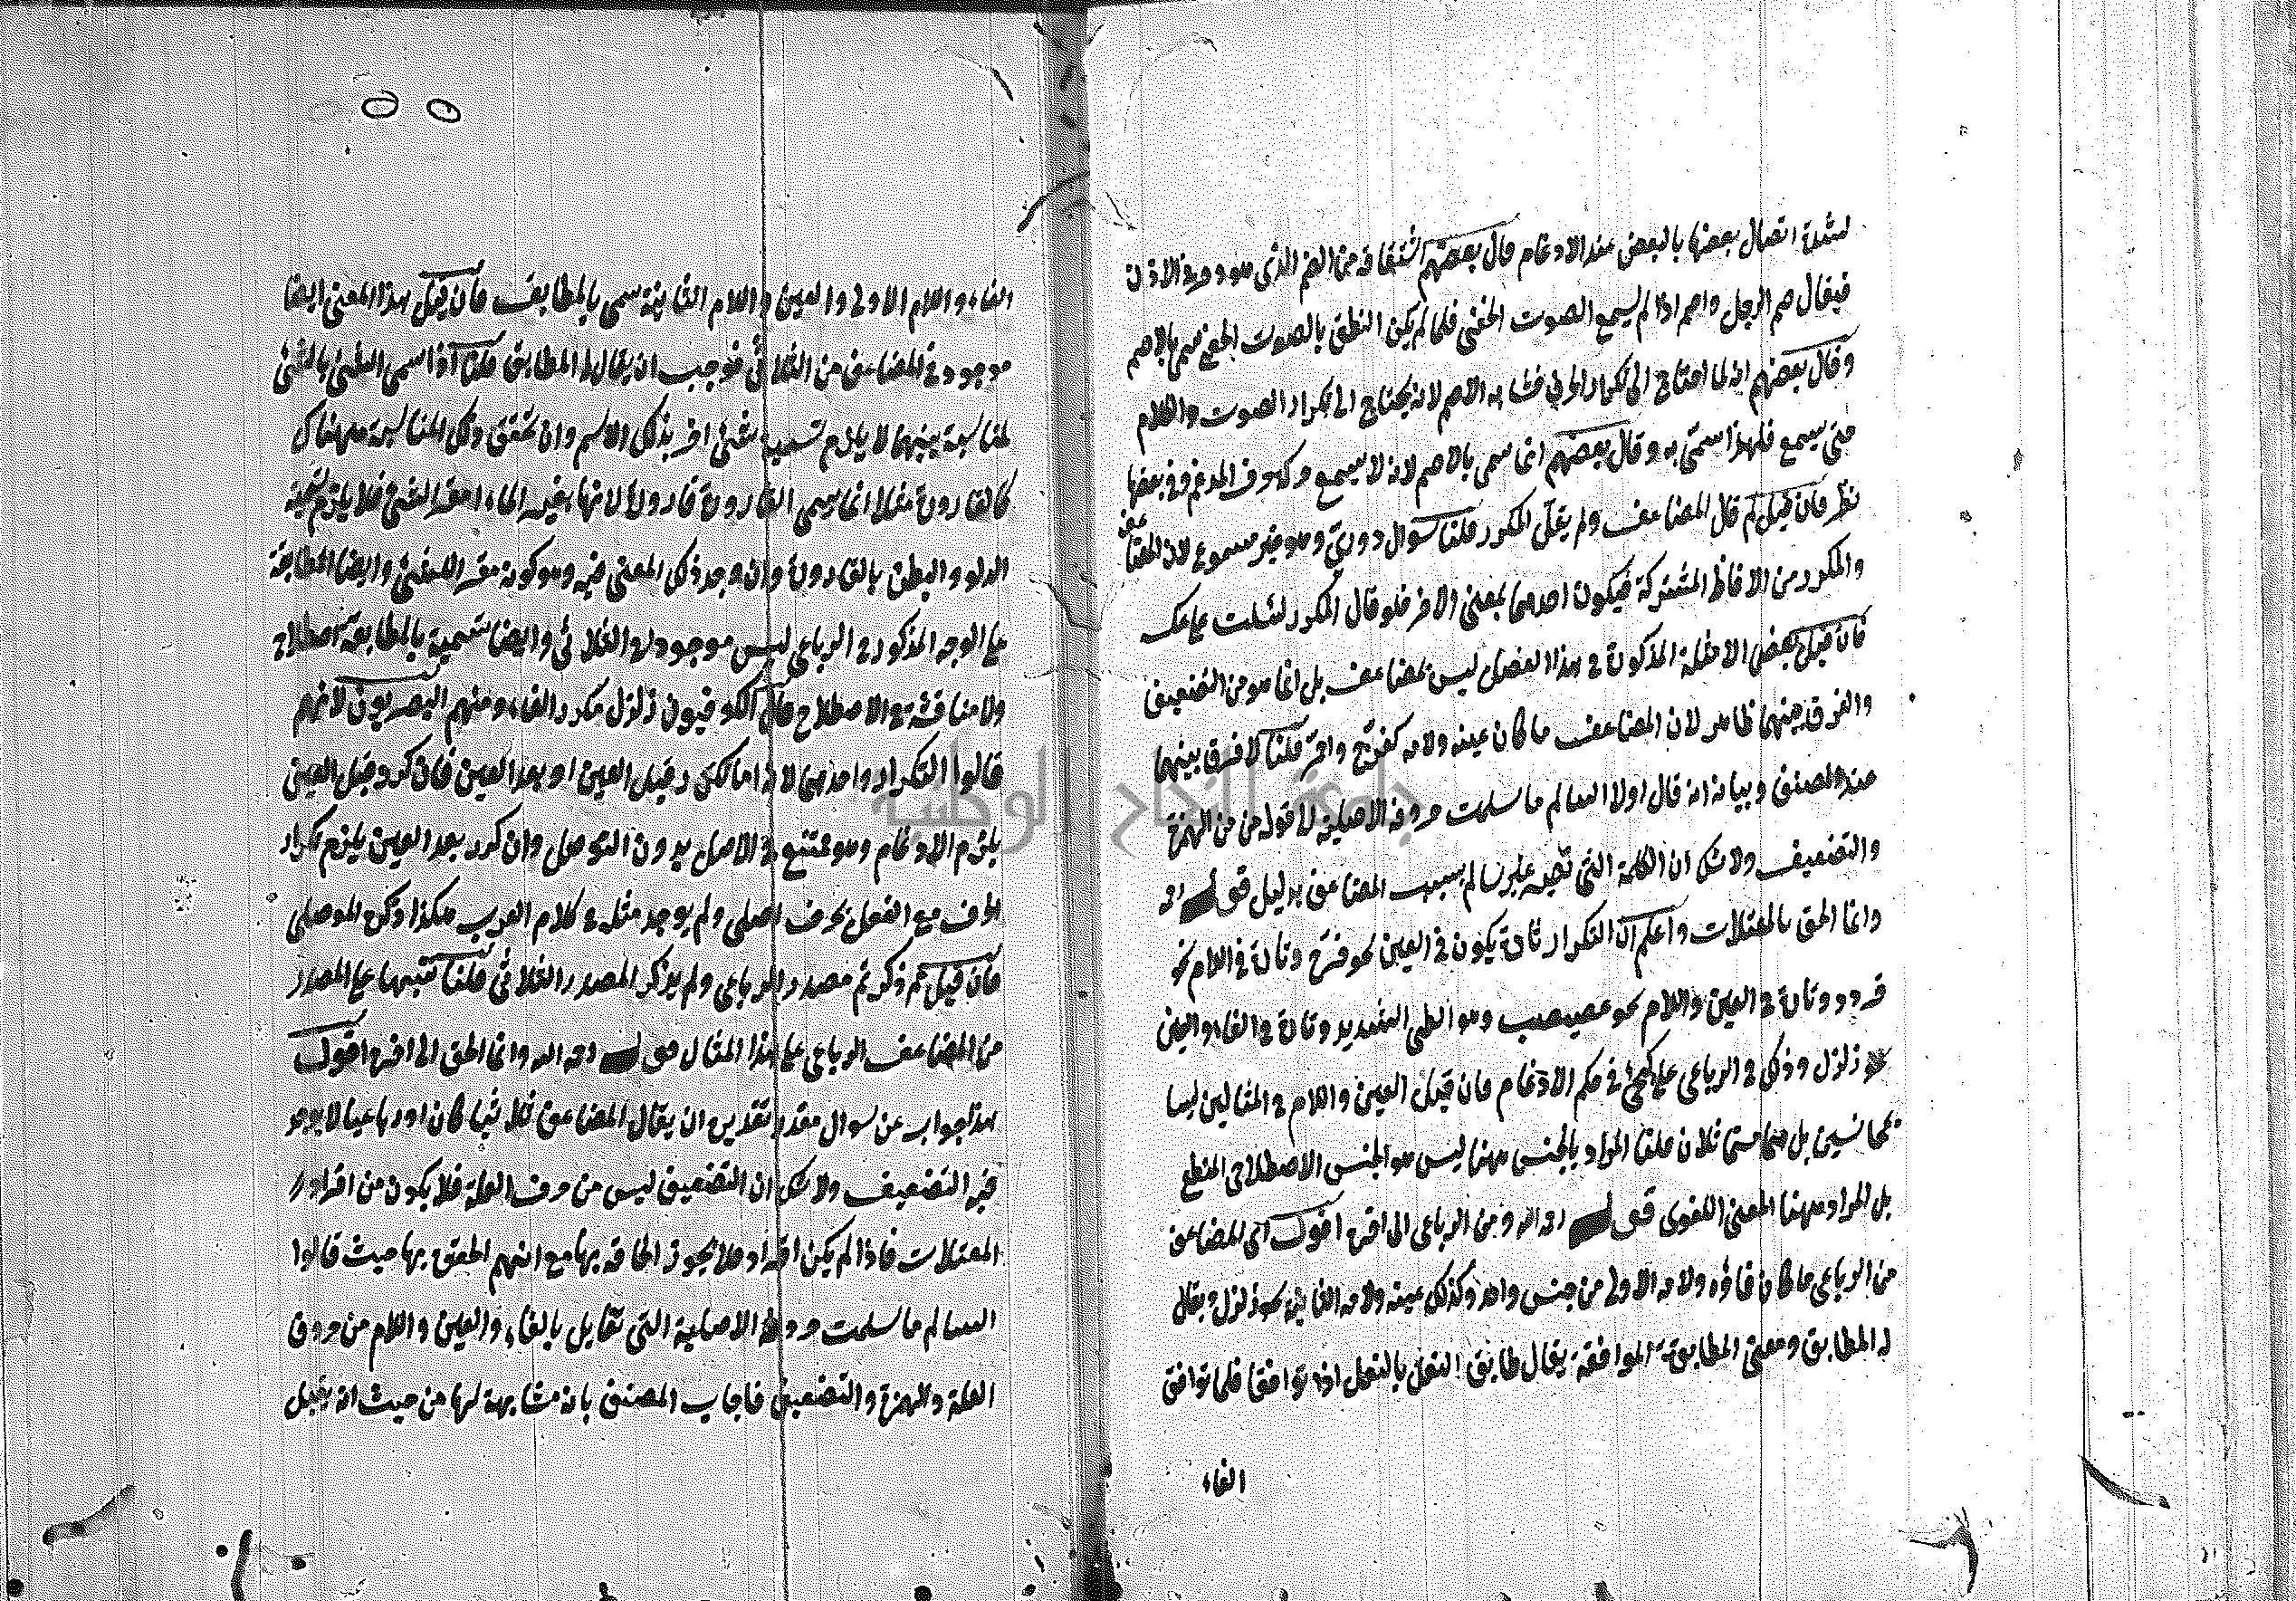 لشدة اتصال بعضها بالبعض عند الادغام قال بعضهم اشتقاقه من الصم الذى هو دوية الاذن
فيقال صم الرجل واصم اذا لم يسمع الصوت الخفى فلما لم يكن النطق بالصوت الخفى سمى بالاصم
وقال بعضهم انه لما احتاج الى تكرار الحرف فشابه الاصم لانه يحتاج الى تكرار الصوت والكلام
حتى يسمع فلهذا سمى به وقال بعضهم انما سمى بالاصم لانه لا يسمع حركة حرف المدغم وفى بعضها
نظر فان قيل لم قال المضاعف ولم يقل المكرر قلنا سوال دورى وهو غير مسموع لان المضاعف
والمكرر من الالفاظ المشتركة فيكون احدهما بمعنى الاخر فلو قال المكرر لسئلت على عكسه
فان قيل بعض الامثلة المذكورة فى هذا الفصل ليس بمضاعف بل انما هو من التضعيف
والفرق بينهما ظاهر لان المضاعف ما كان عينه ولامه كفرح واحمر قلنا لا فرق بينهما
عند المصنف وبيانه انه قال اولا السالم ما سلمت حروفه الاصلية الى قوله من الهمزة
والتضعيف ولا شك ان الكلمة التى تصير غير سالم بسبب المضاعف بدليل قوله رحه
وانما الحق بالمعتلات واعلم ان التكرار تارة يكون فى العين نحو فرح وتارة فى اللام نحو
قردد وتارة فى العين واللام نحو عصبصب وهو الطى الشديد وتارة فى الفاء والعين
نحو زلزل وذلك فى الرباعى على ما يجئ فى حكم الادغام فان قيل العين واللام فى المثالين ليسا
بمجانسين بل هما متماثلان قلنا المراد بالجنس ههنا ليس هو الجنس الاصطلاحى المنطقى
بل المراد ههنا المعنى اللغوى قوله رحه الله ومن الرباعى الى اخره اقول اى المضاعف
من الرباعى ما كان فاؤه ولامه الاولى من جنس واحد وكذلك عينه ولامه الثانية نحو زلزل ويقال
له المطابق ومعنى المطابقة الموافقة يقال طابق النعل بالنعل اذا توافقا فلما توافق
الفاء
الفاء واللام الاولى والعين واللام الثانية سمى بالمطابق فان قيل هذا المعنى ايضا
موجود فى المضاعف من الثلاثى فوجب ان يقال له المطابق قلنا اذا سمى الشئ بالشئ
لمناسبة بينهما لا يلزم تسمية شئ اخر بذلك الاسم وان تحقق تلك المناسبة هناك
كالقارورة مثلا انما سمى القارورة قارورة لانها يقر فيه الماء اى مقر الشئ فلا يلزم تسمية
الدلو والبطن بالقارورة وان وجد ذلك المعنى فيه وهو كونه مقر الشئ وايضا المطابقة
على الوجه المذكور فى الرباعى ليس موجودا فى الثلاثى وايضا تسميته بالمطابقة اصطلاح
ولا مناقشة فى الاصطلاح قال الكوفيون زلزل مكرر الفاء ومنهم البصريون لانهم
قالوا التكرار واحد منهما لانه اما تكرر قبل العين او بعد العين فان كرر قبل العين
يلزم الادغام وهو ممتنع فى الاصل بدون التوصل وان كرر بعد العين يلزم تكرار
الحرف مع الفصل بحرف اصلى ولم يوجد مثله فى كلام العرب هكذا ذكره الموصلى
فان قيل لم ذكر ثم مصدر الرباعى ولم يذكر المصدر الثلاثى قلنا تنبيها على المصدر
من المضاعف الرباعى على هذا المثال قوله رحه الله وانما الحق الى اخره اقول
هذا جواب عن سوال مقدر تقديره ان يقال المضاعف ثلاثيا كان او رباعيا لا يوجد
فيه التضعيف ولا شك ان التضعيف ليس من حرف العلة فلا يكون من افراد
المعتلات فاذا لم يكن افراد فلا يجوز الحاقه بها مع انهم الحقوه بها حيث قالوا
السالم ما سلمت حروفه الاصلية التى تقابل بالفاء والعين واللام من حروف
العلة والهمزة والتضعيف فاجاب المصنف بانه مشابهة لها من حيث انه يقبل
جامعة النجاح الوطنية